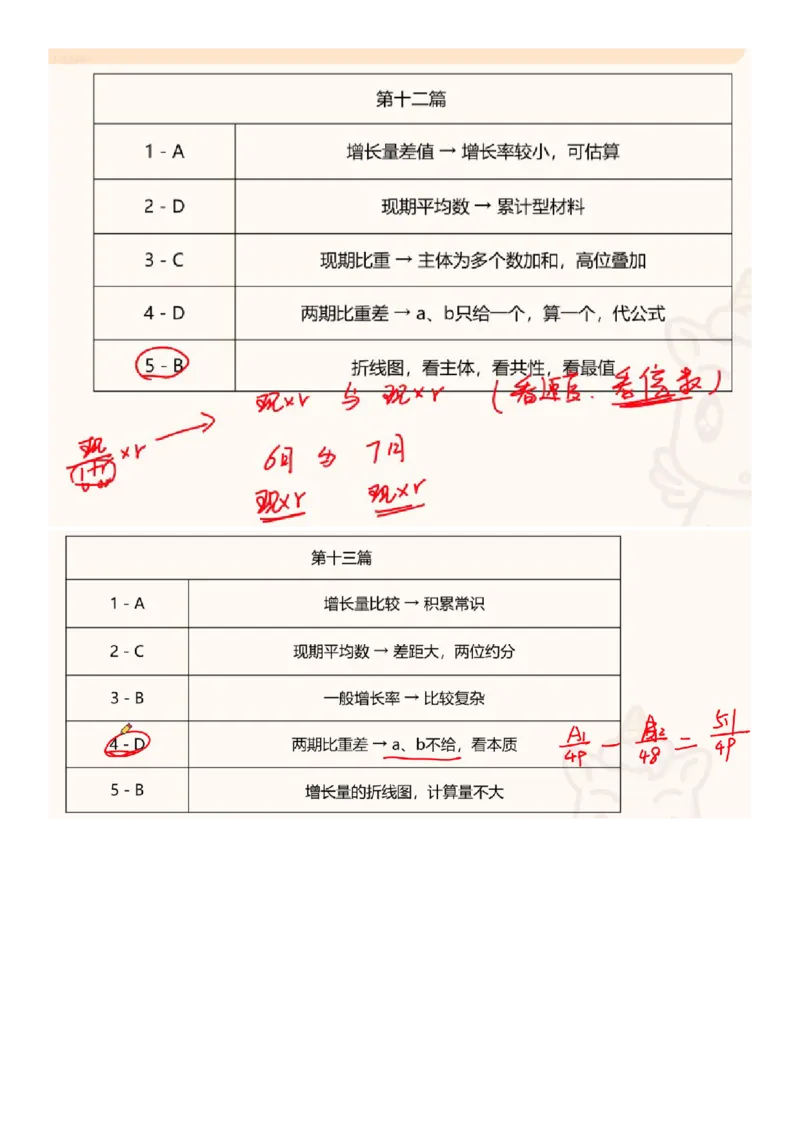 第十二篇
1 - A 增长量差值 → 增长率较小，可估算
2 - D 现期平均数 → 累计型材料
3 - C 现期比重 → 主体为多个数加和，高位叠加
4 - D 两期比重差 → a、b只给一个，算一个，代公式
5 - B 折线图，看主体，看共性，看最值
现×r 与 现×r （看速度、看倍数）
现/1+r ×r
6月 与 7月
现×r 现×r
第十三篇
1 - A 增长量比较 → 积累常识
2 - C 现期平均数 → 差距大，两位约分
3 - B 一般增长率 → 比较复杂
4 - D 两期比重差 → a、b不给，看本质
A1/49 - A2/48 = 51/49
5 - B 增长量的折线图，计算量不大